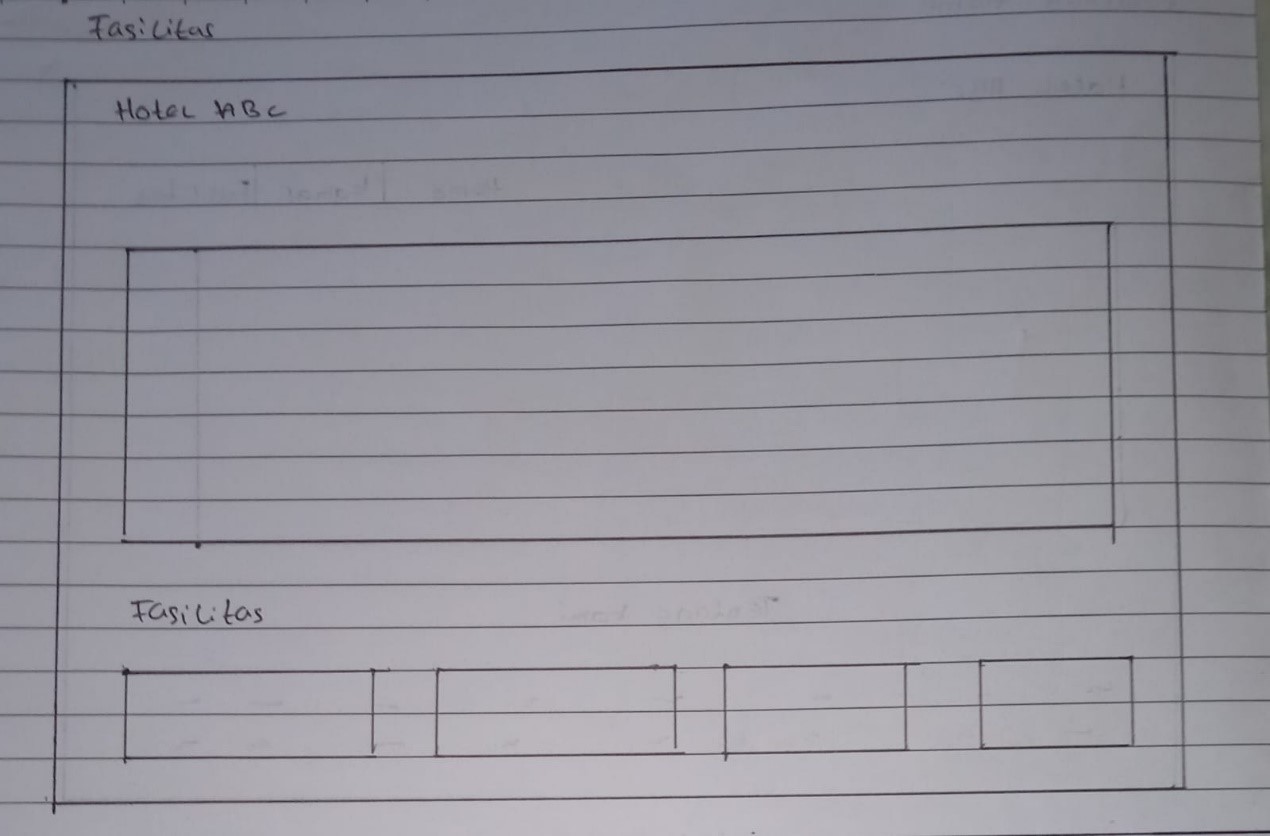 Fasilitas
Hotel ABC
Fasilitas